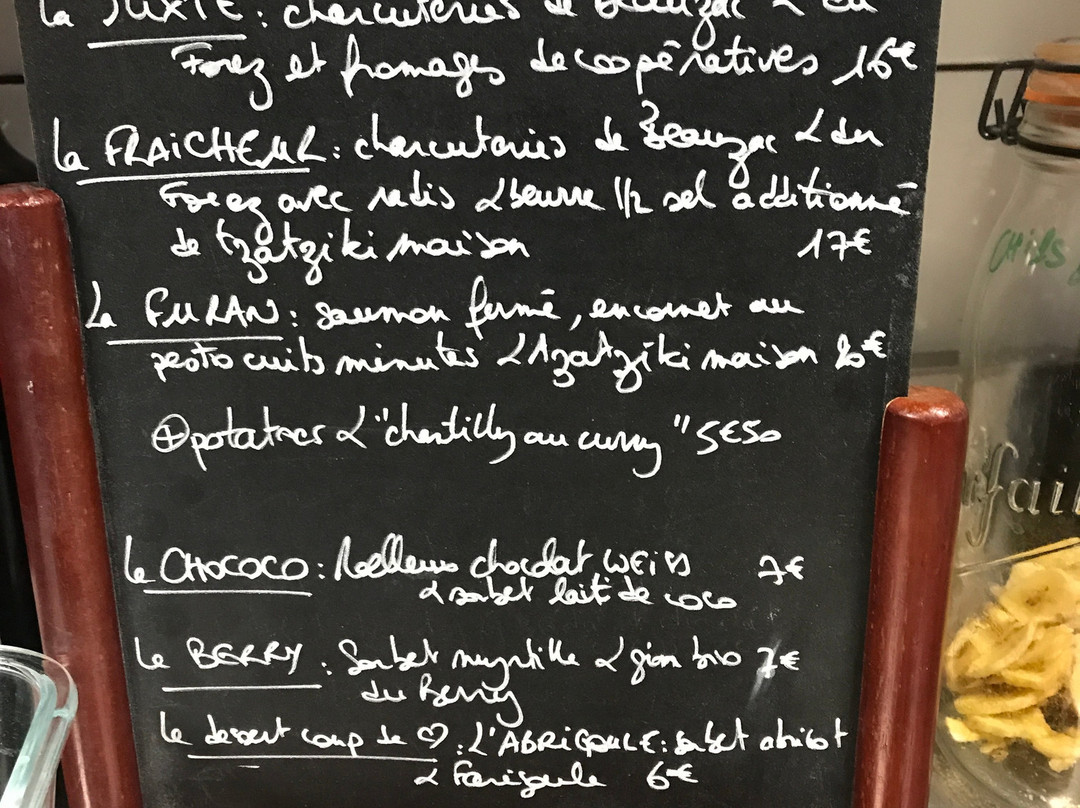 la MIXTE : charcuteries de Beauzac & du
Forez et fromages de coopératives 16€
la FRAICHEUR : charcuteries de Beauzac & du
Forez avec radis & beurre 1/2 sel additionné
de tzatziki maison 17€
La FURAN : saumon fumé, encornet au
pesto cuits minutes & Tzatziki maison 20€
⊕ potatoes & "chantilly au curry" 5€50
le CHOCOCO : Moelleux chocolat WEISS 7€
& sorbet lait de coco
Le BERRY : Sorbet myrtille & gin bio 7€
du Berry
Le dessert coup de ♡ : L'ABRIGOULE : sorbet abricot
& Farigoule 6€
CHiPS
fait